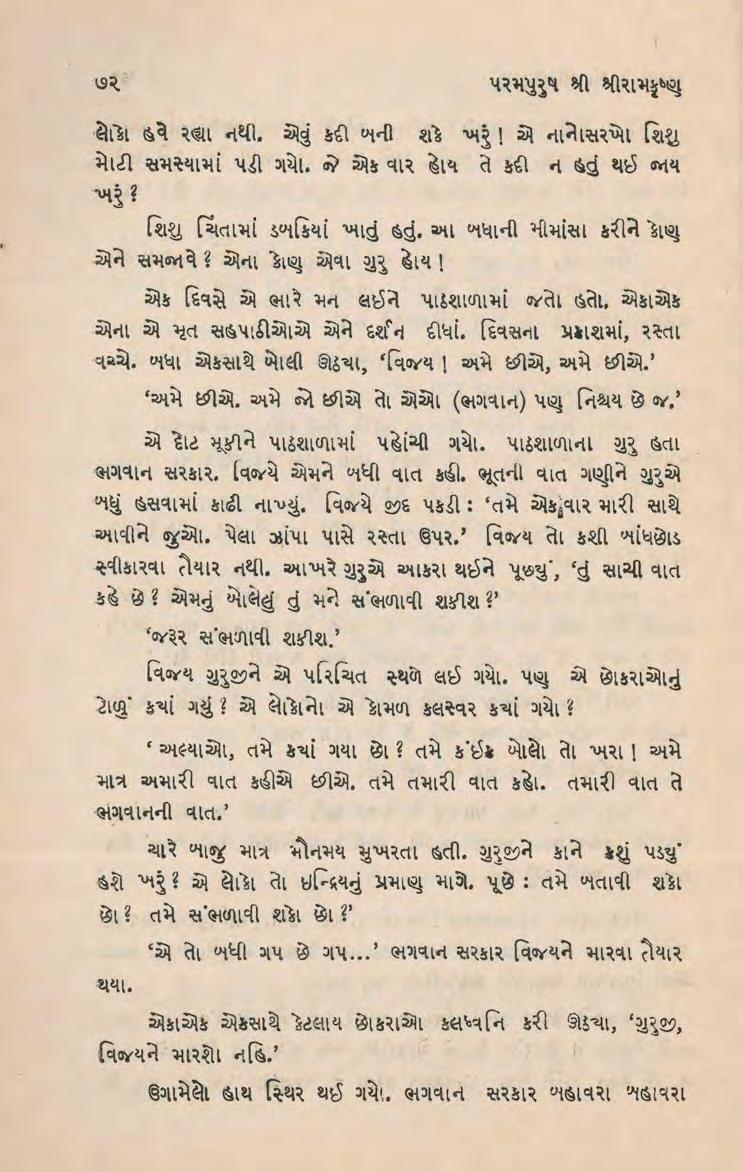 ૭૨ પરમપુરુષ શ્રી શ્રીરામકૃષ્ણ
લોકો હવે રહ્યા નથી. એવું કદી બની શકે ખરું! એ નાનોસરખો શિશુ
મોટી સમસ્યામાં પડી ગયો. જે એક વાર હોય તે કદી ન હતું થઈ જાય
ખરું?
શિશુ ચિંતામાં ડબકિયાં ખાતું હતું. આ બધાની મીમાંસા કરીને કોણ
એને સમજાવે? એના કોણ એવા ગુરુ હોય!
એક દિવસે એ ભારે મન લઈને પાઠશાળામાં જતો હતો. એકાએક
એના એ મૃત સહપાઠીઓએ એને દર્શન દીધાં. દિવસના પ્રકાશમાં, રસ્તા
વચ્ચે. બધા એકસાથે બોલી ઊઠ્યા, ‘વિજય! અમે છીએ, અમે છીએ.’
‘અમે છીએ. અમે જો છીએ તો એઓ (ભગવાન) પણ નિશ્ચય છે જ.’
એ દોટ મૂકીને પાઠશાળામાં પહોંચી ગયો. પાઠશાળાના ગુરુ હતા
ભગવાન સરકાર. વિજયે એમને બધી વાત કહી. ભૂતની વાત ગણીને ગુરુએ
બધું હસવામાં કાઢી નાખ્યું. વિજયે જીદ પકડી: ‘તમે એકવાર મારી સાથે
આવીને જુઓ. પેલા ઝાંપા પાસે રસ્તા ઉપર.’ વિજય તો કશી બાંધછોડ
સ્વીકારવા તૈયાર નથી. આખરે ગુરુએ આકરા થઈને પૂછ્યું, ‘તું સાચી વાત
કહે છે? એમનું બોલેલું તું મને સંભળાવી શકીશ?’
‘જરૂર સંભળાવી શકીશ.’
વિજય ગુરુજીને એ પરિચિત સ્થળે લઈ ગયો. પણ એ છોકરાઓનું
ટોળું ક્યાં ગયું? એ લોકોનો એ કોમળ કલસ્વર ક્યાં ગયો?
‘અલ્યાઓ, તમે ક્યાં ગયા છો? તમે કંઈક બોલો તો ખરા! અમે
માત્ર અમારી વાત કહીએ છીએ. તમે તમારી વાત કહો. તમારી વાત તે
ભગવાનની વાત.’
ચારે બાજુ માત્ર મૌનમય મુખરતા હતી. ગુરુજીને કાને કશું પડ્યું
હશે ખરું? એ લોકો તો ઇન્દ્રિયનું પ્રમાણ માગે. પૂછે: તમે બતાવી શકો
છો? તમે સંભળાવી શકો છો?’
‘એ તો બધી ગપ છે ગપ...’ ભગવાન સરકાર વિજયને મારવા તૈયાર
થયા.
એકાએક એકસાથે કેટલાય છોકરાઓ કલધ્વનિ કરી ઊઠ્યા, ‘ગુરુજી,
વિજયને મારશો નહિ.’
ઉગામેલો હાથ સ્થિર થઈ ગયો. ભગવાન સરકાર બહાવરા બહાવરા